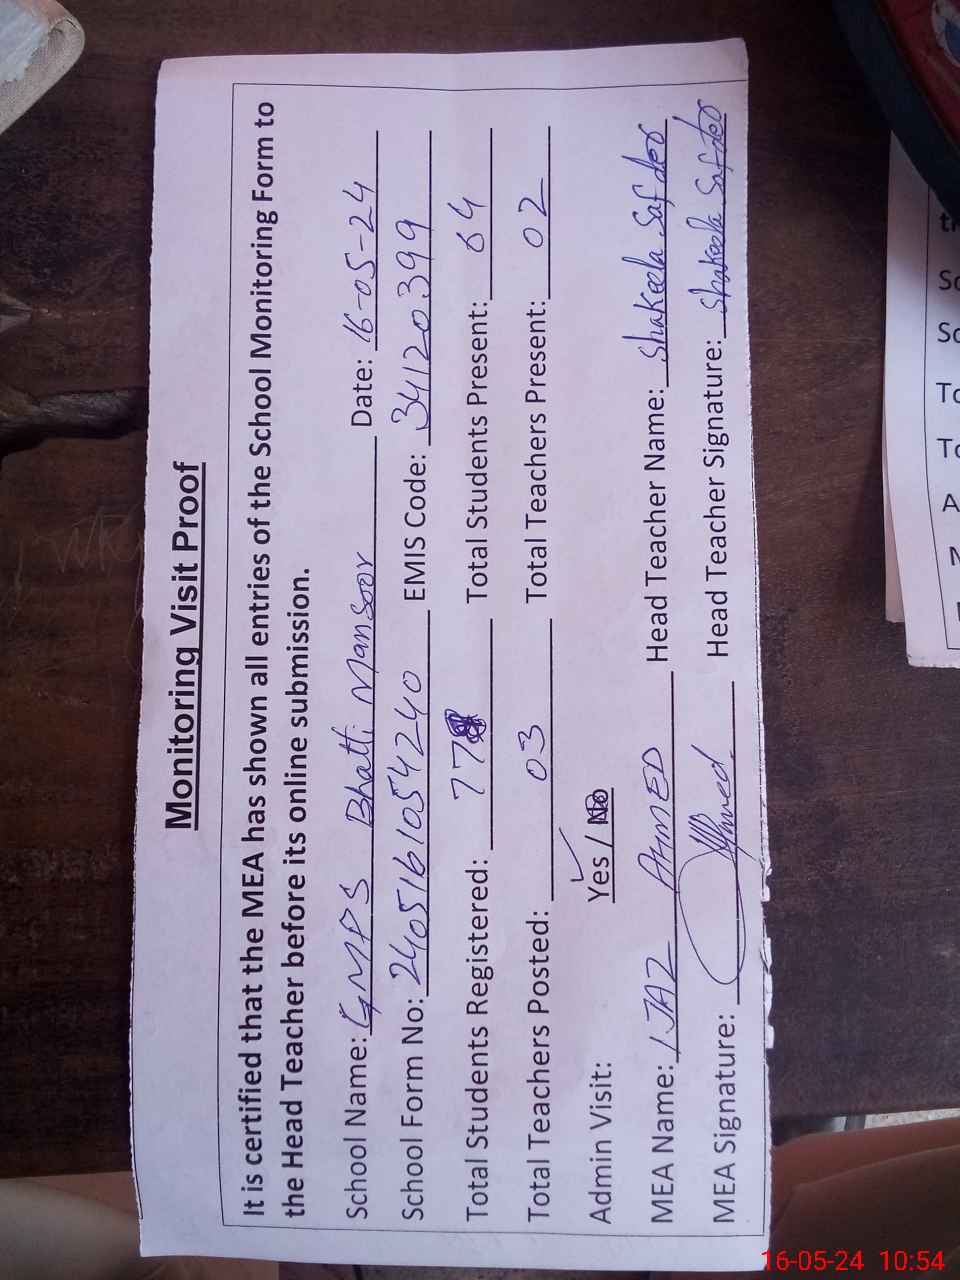 Monitoring Visit Proof
It is certified that the MEA has shown all entries of the School Monitoring Form to
the Head Teacher before its online submission.
School Name: GMPS Bhatti Mansoor Date: 16-05-24
School Form No: 24051610542​40 EMIS Code: 34120399
Total Students Registered: 77 Total Students Present: 64
Total Teachers Posted: 03 Total Teachers Present: 02
Admin Visit: Yes / No
MEA Name: IJAZ AHMED Head Teacher Name: Shakeela Safder
MEA Signature: Ahmed Head Teacher Signature: Shakeela Safder
So
So
To
To
A
16-05-24 10:54